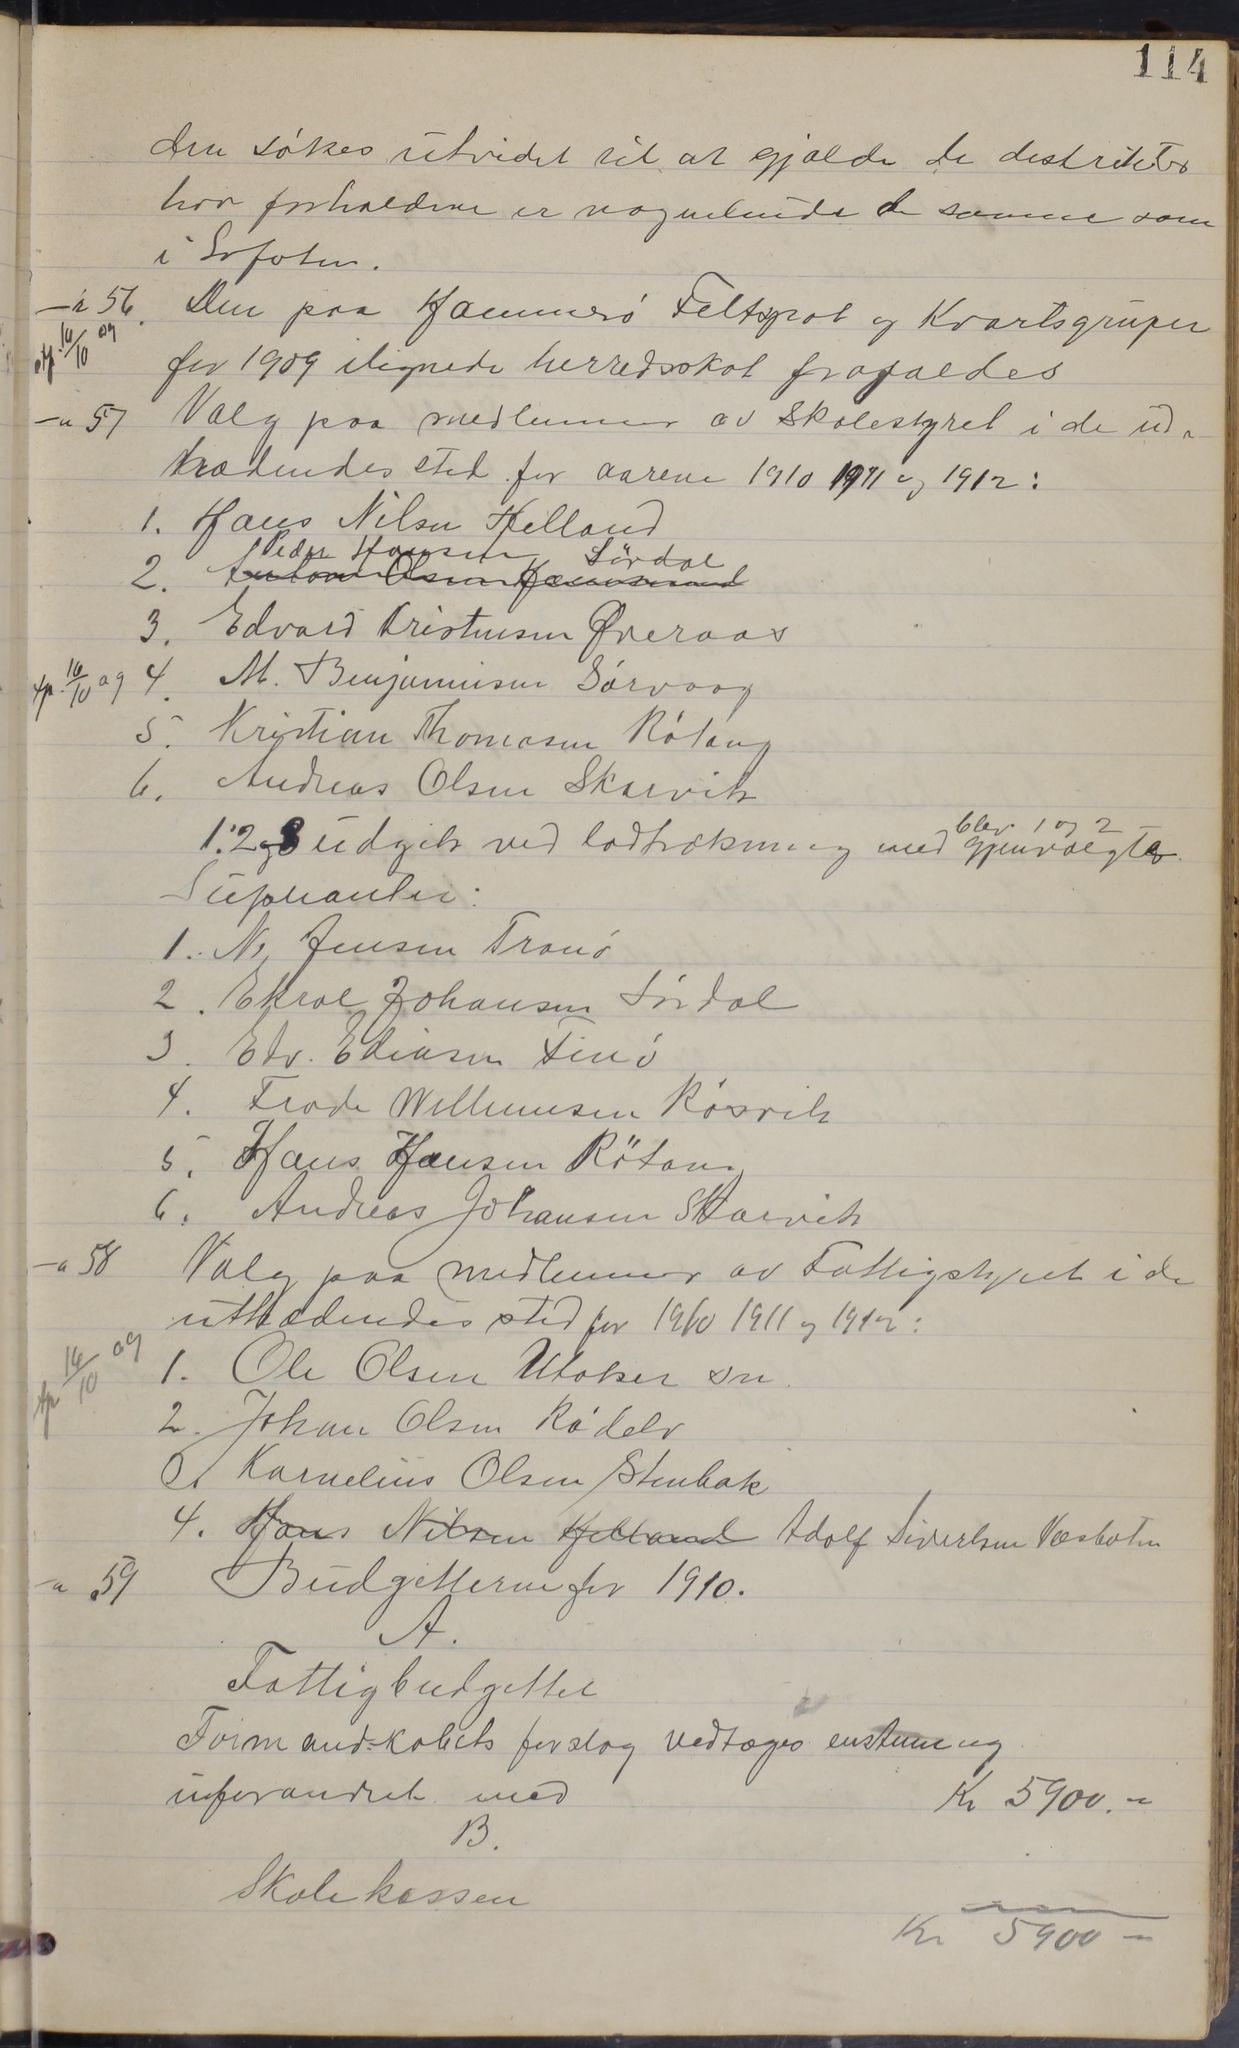 114
den søkes utvidet til at gjælde de destrikter
hvor forholdene er nogenlunde de samme som
i Lofoten.
-" 56. Den paa Hammerø Feltspat og Kvartsgruper
exp 16/10 09
for 1909 ilignede herredsskat frafaldes
-" 57 Valg paa medlemmer av Skolestyret i de ud-
trædendes sted for aarene 1910 1911 og 1912:
1. Hans Nilsen Helland
Peder Hansen Sørdal
2. Anton Olsen
3. Edvard Kristensen Øveraas
exp. 16/10 09 4. M. Benjaminsen Sørvaag
5. Kristian Thomasen Røtang
6. Andreas Olsen Skarvik
blev 1 og 2
1. 2 og 3 udgik ved lodtrækning med gjenvalgte.
Suplianter:
1. N. Jensen Tranø
2. Ekrol Johansen Sørdal
3. Edv. Eliasen Finø
4. Frode Willumsen Røsvik
5. Hans Hansen Røtang
6. Andreas Johansen Skarvik
-" 58 Valg paa medlemmer av Fattigstyret i de
uttrædendes sted for 1910 1911 og 1912:
exp 16/10 09
1. Ole Olsen Utaker sn.
2. Johan Olsen Rødelv
3. Kornelius Olsen Stenbak
4. Hans Nilsen Helland Adolf Sivertsen Næsbotn
-" 59 Budgetterne for 1910.
A.
Fattigbudgettet
Formandskabets forslag vedtages enstemmig
uforandret med Kr 5900.-
B.
Skolekassen
Kr 5900-